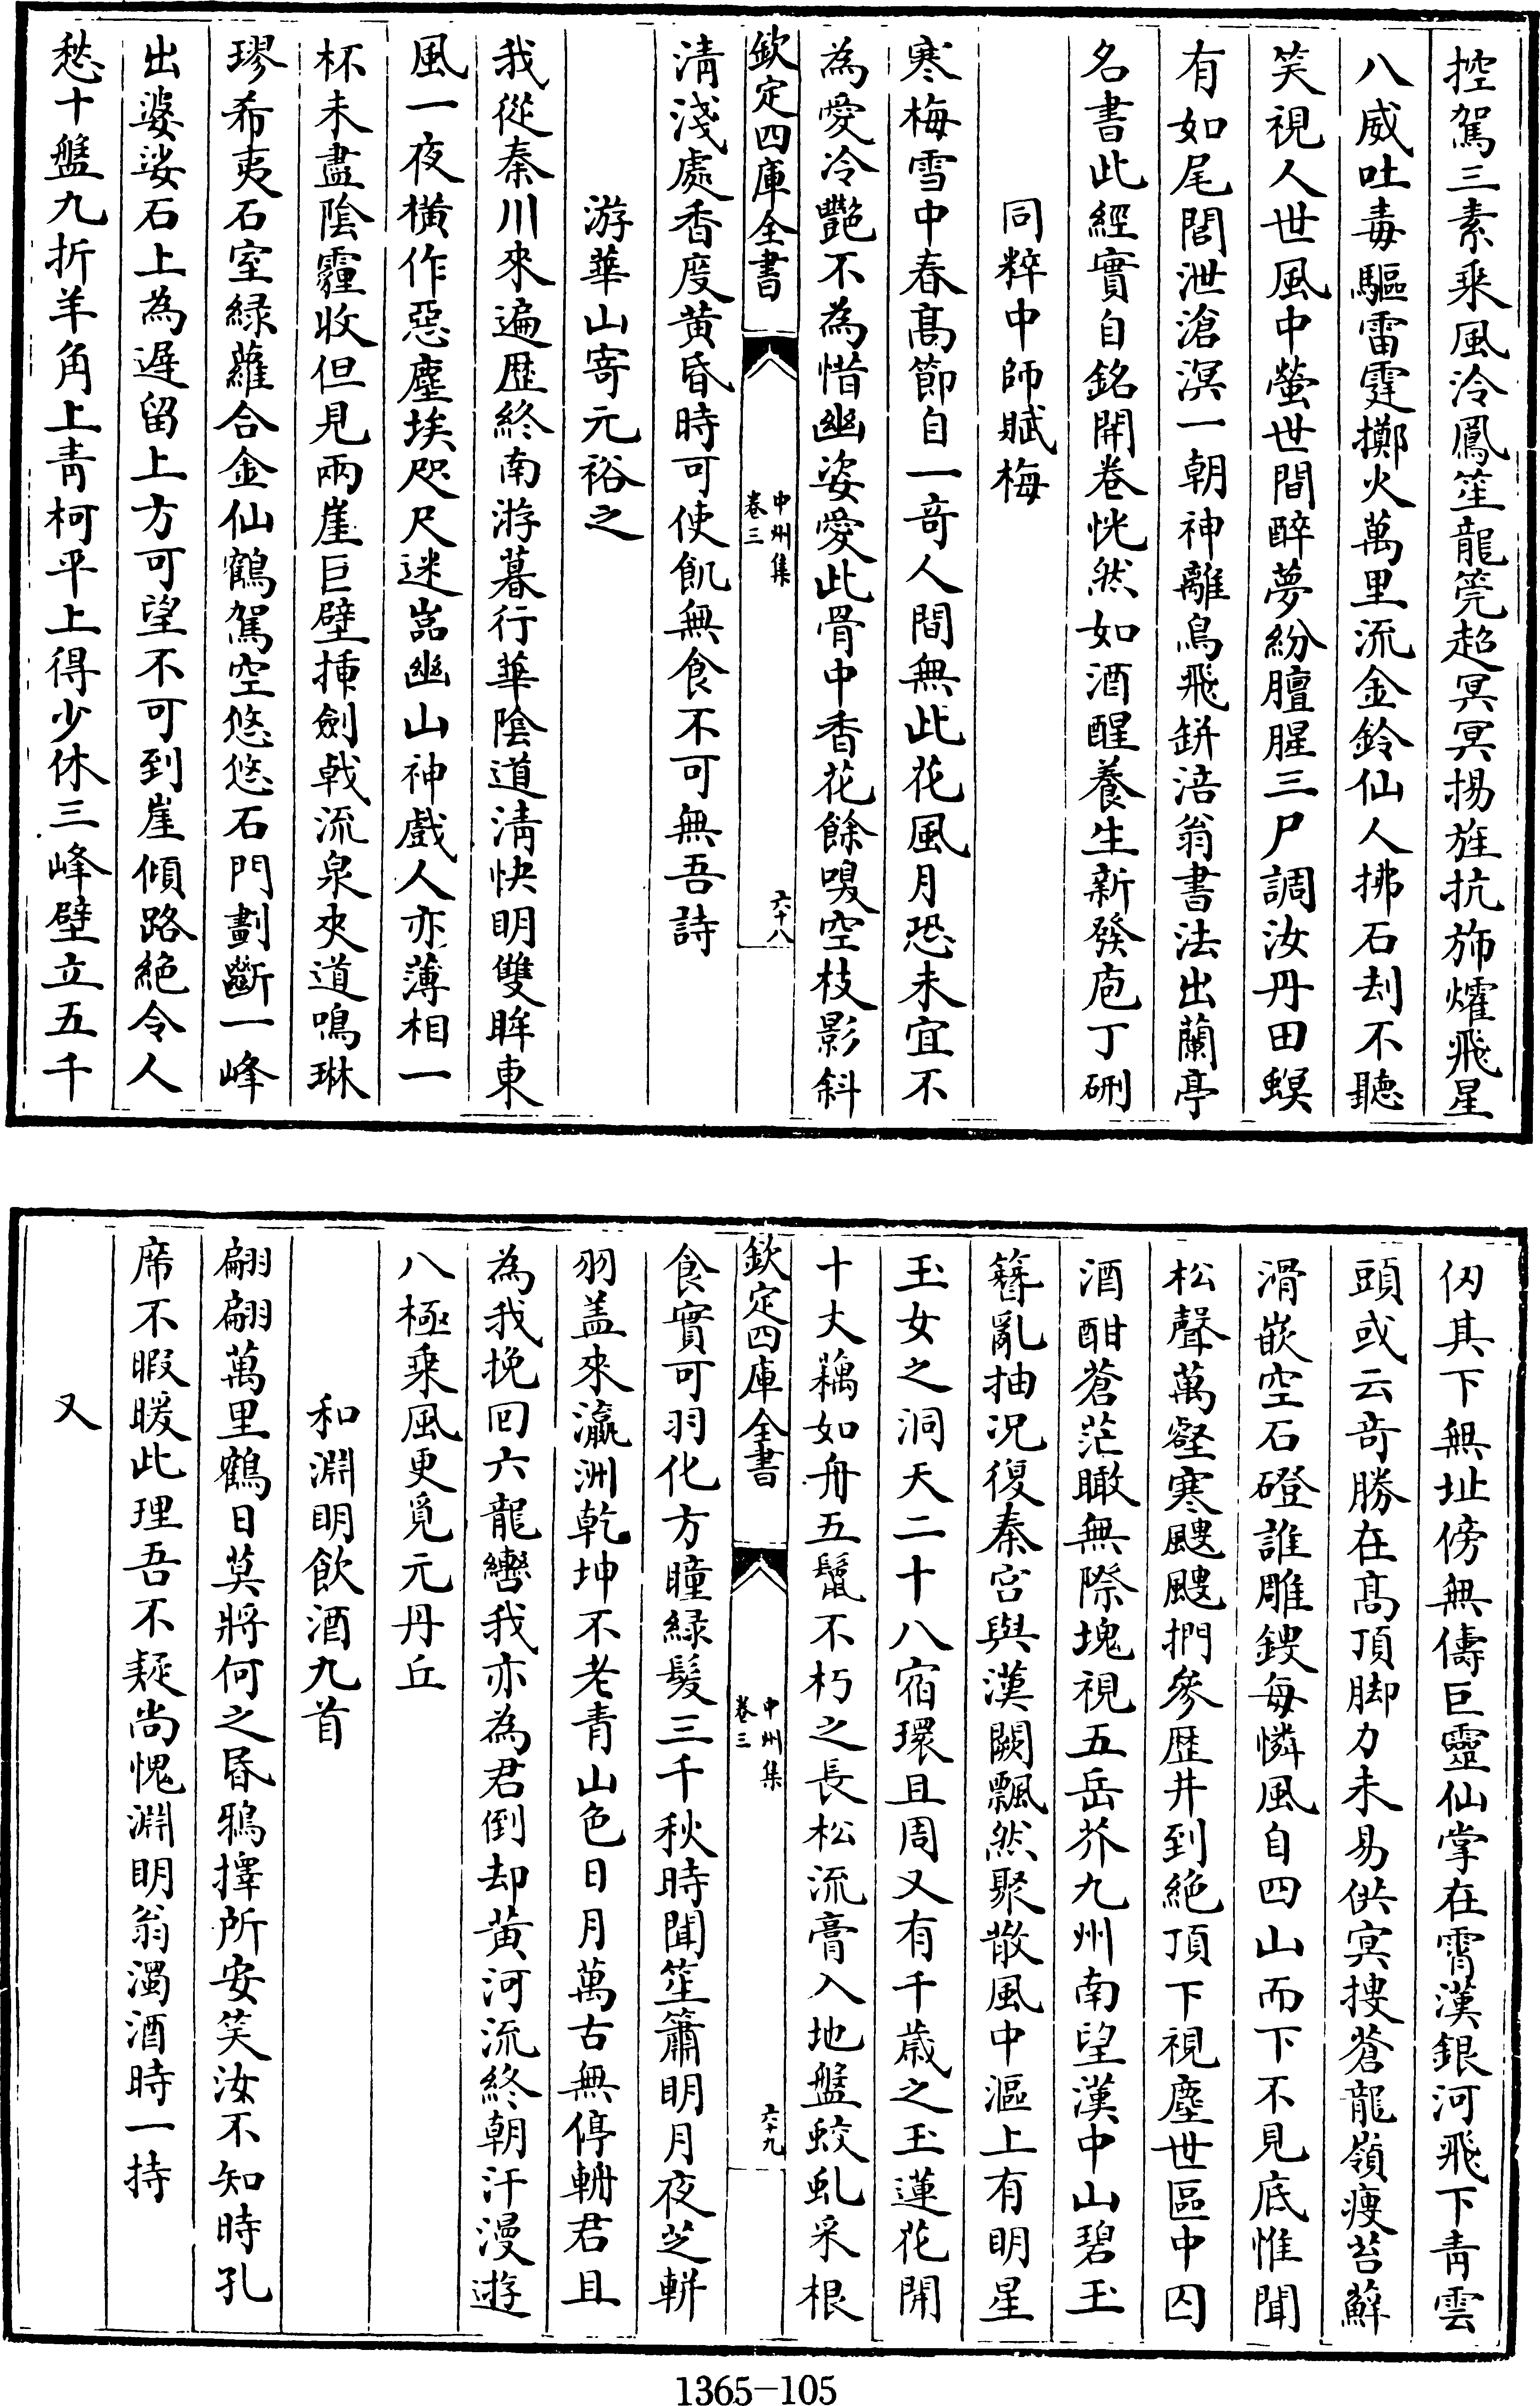 控駕三素乘風泠鳳笙龍箢超冥冥揚旌抗斾燿飛星
八威吐毒驅雷霆擲火萬里流金鈴仙人拂石刦不聽
笑視人世風中螢世間醉夢紛膻腥三尸調汝丹田螟
有如尾閭泄滄溟一朝神離鳥飛缾涪翁書法出蘭亭
名書此經實自銘開卷恍然如酒醒養生新發庖丁硎
同粹中師賦梅
寒梅雪中春髙節自一竒人間無此花風月恐未宜不
為愛冷艷不為惜幽姿愛此骨中香花餘嗅空枝影斜
欽定四庫全書
中州集
卷三
六十八
清淺處香度黄昏時可使飢無食不可無吾詩
游華山寄元裕之
我從秦川來遍歴終南游暮行華陰道清快明雙眸東
風一夜横作惡塵埃咫尺迷嵓幽山神戲人亦薄相一
杯未盡陰霾收但見兩崖巨壁揷劍戟流泉夾道鳴琳
璆希夷石室緑蘿合金仙鶴駕空悠悠石門劃斷一峰
出婆娑石上為遲留上方可望不可到崖傾路絶令人
愁十盤九折羊角上青柯平上得少休三峰壁立五千
仞其下無址傍無儔巨靈仙掌在霄漢銀河飛下青雲
頭或云竒勝在髙頂脚力未易供冥搜蒼龍嶺瘦苔蘚
滑嵌空石磴誰雕鎪每憐風自四山而下不見底惟聞
松聲萬壑寒颼颼捫參歴井到絶頂下視塵世區中囚
酒酣蒼茫瞰無際塊視五岳芥九州南望漢中山碧玉
簪亂抽況復秦宫與漢闕飄然聚散風中漚上有明星
玉女之洞天二十八宿環且周又有千歳之玉蓮花開
十丈藕如舟五鬛不朽之長松流膏入地盤蛟虬采根
欽定四庫全書
中州集
卷三
六十九
食實可羽化方瞳緑髮三千秋時聞笙簫明月夜芝軿
羽盖來瀛洲乾坤不老青山色日月萬古無停輈君且
為我挽囘六龍轡我亦為君倒却黄河流終朝汗漫遊
八極乘風更覓元丹丘
和淵明飲酒九首
翩翩萬里鶴日莫將何之昏鴉擇所安笑汝不知時孔
席不暇暖此理吾不疑尚愧淵明翁濁酒時一持
又
1365-105